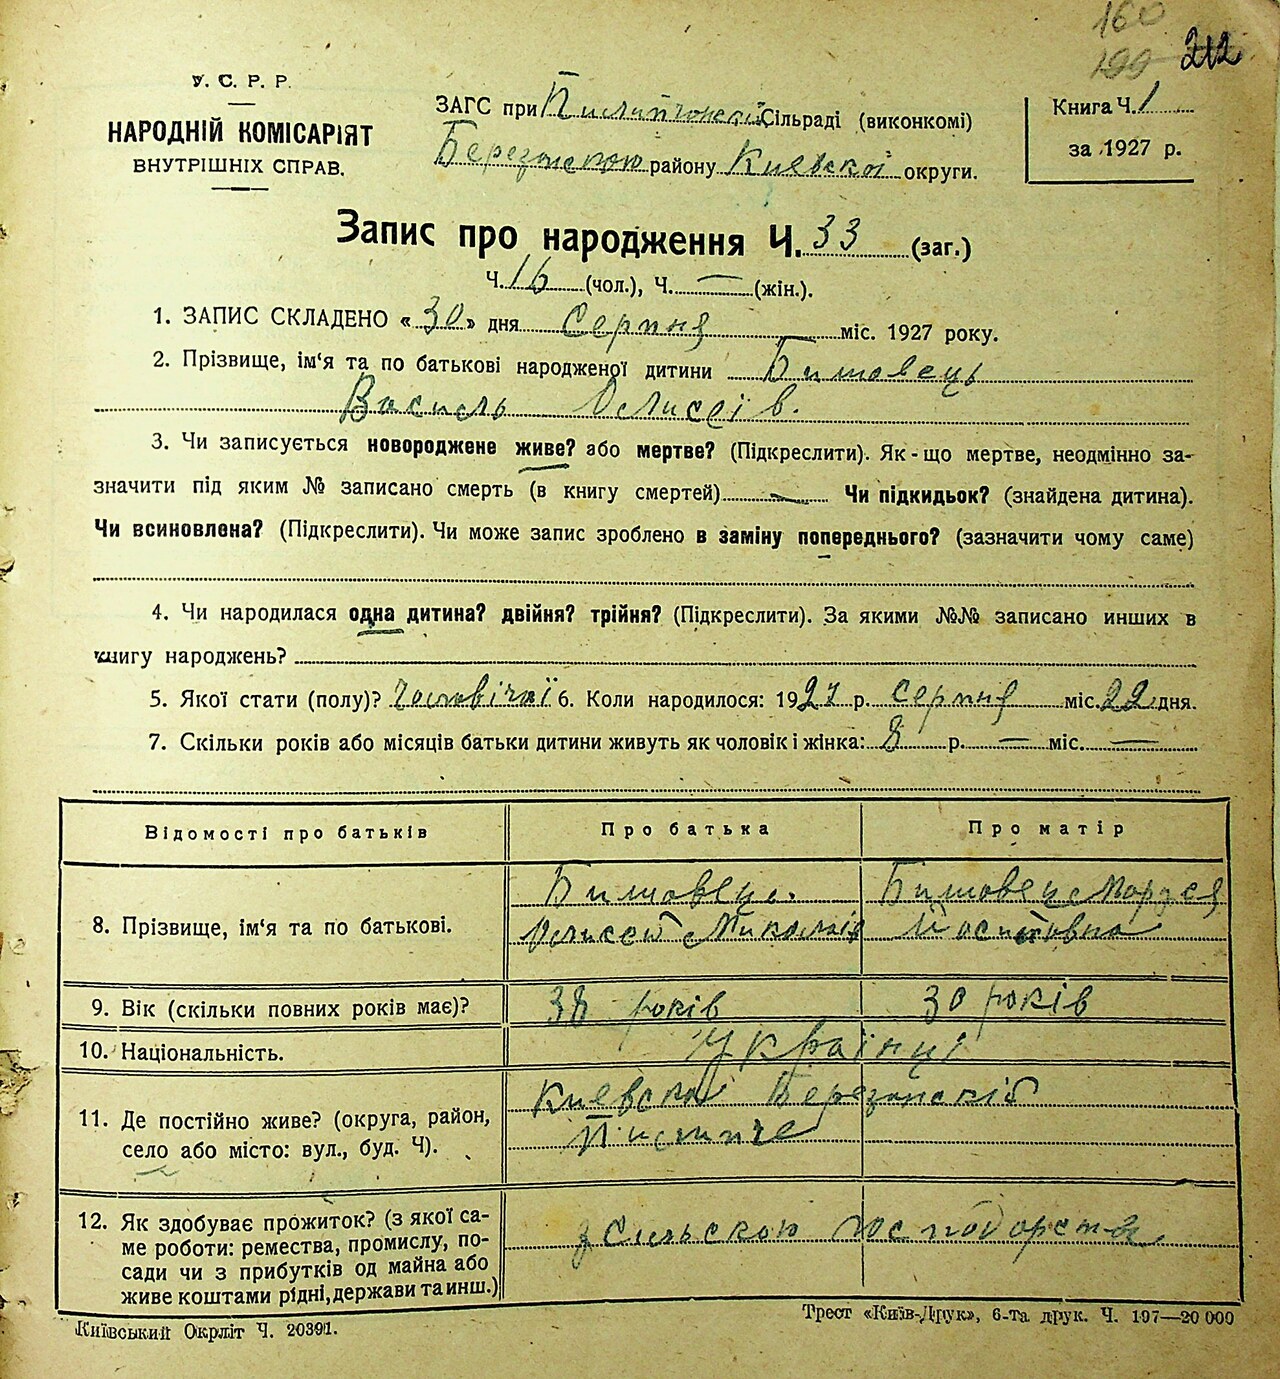 160
199 212
У. С. Р. Р.
НАРОДНІЙ КОМІСАРІЯТ
ВНУТРІШНІХ СПРАВ.
ЗАГС при Сільраді (виконкомі)
Березанского району Киевскої округи.
Книга Ч. 1
за 1927 р.
Запис про народження Ч. 33 (заг.)
Ч. 16 (чол.), Ч. — (жін.).
1. ЗАПИС СКЛАДЕНО «30» дня Серпня міс. 1927 року.
2. Прізвище, ім‘я та по батькові народженої дитини Бишовець
Василь Олиссіїв.
3. Чи записується новороджене живе? або мертве? (Підкреслити). Як-що мертве, неодмінно за-
значити під яким № записано смерть (в книгу смертей) — Чи підкидьок? (знайдена дитина).
Чи всиновлена? (Підкреслити). Чи може запис зроблено в заміну попереднього? (зазначити чому саме)
4. Чи народилася одна дитина? двійня? трійня? (Підкреслити). За якими №№ записано инших в
книгу народжень?
5. Якої стати (полу)? Чоловічаї 6. Коли народилося: 1927 р. серпня міс. 22 дня.
7. Скільки років або місяців батьки дитини живуть як чоловік і жінка: 8 р. — міс. —
Відомості про батьків Про батька Про матір
8. Прізвище, ім‘я та по батькові. Бишовець Бишовець Маруся
Олиссей Миколаїв
9. Вік (скільки повних років має)? 38 років 30 років
10. Національність. Українці
11. Де постійно живе? (округа, район, Киевскої Березанский
село або місто: вул., буд. Ч).
12. Як здобуває прожиток? (з якої са- з Сильского господарства
ме роботи: ремества, промислу, по-
сади чи з прибутків од майна або
живе коштами рідні, держави та инш.)
Київський Окрліт Ч. 20391.
Трест «Київ-Друк», 6-та друк. Ч. 197—20 000